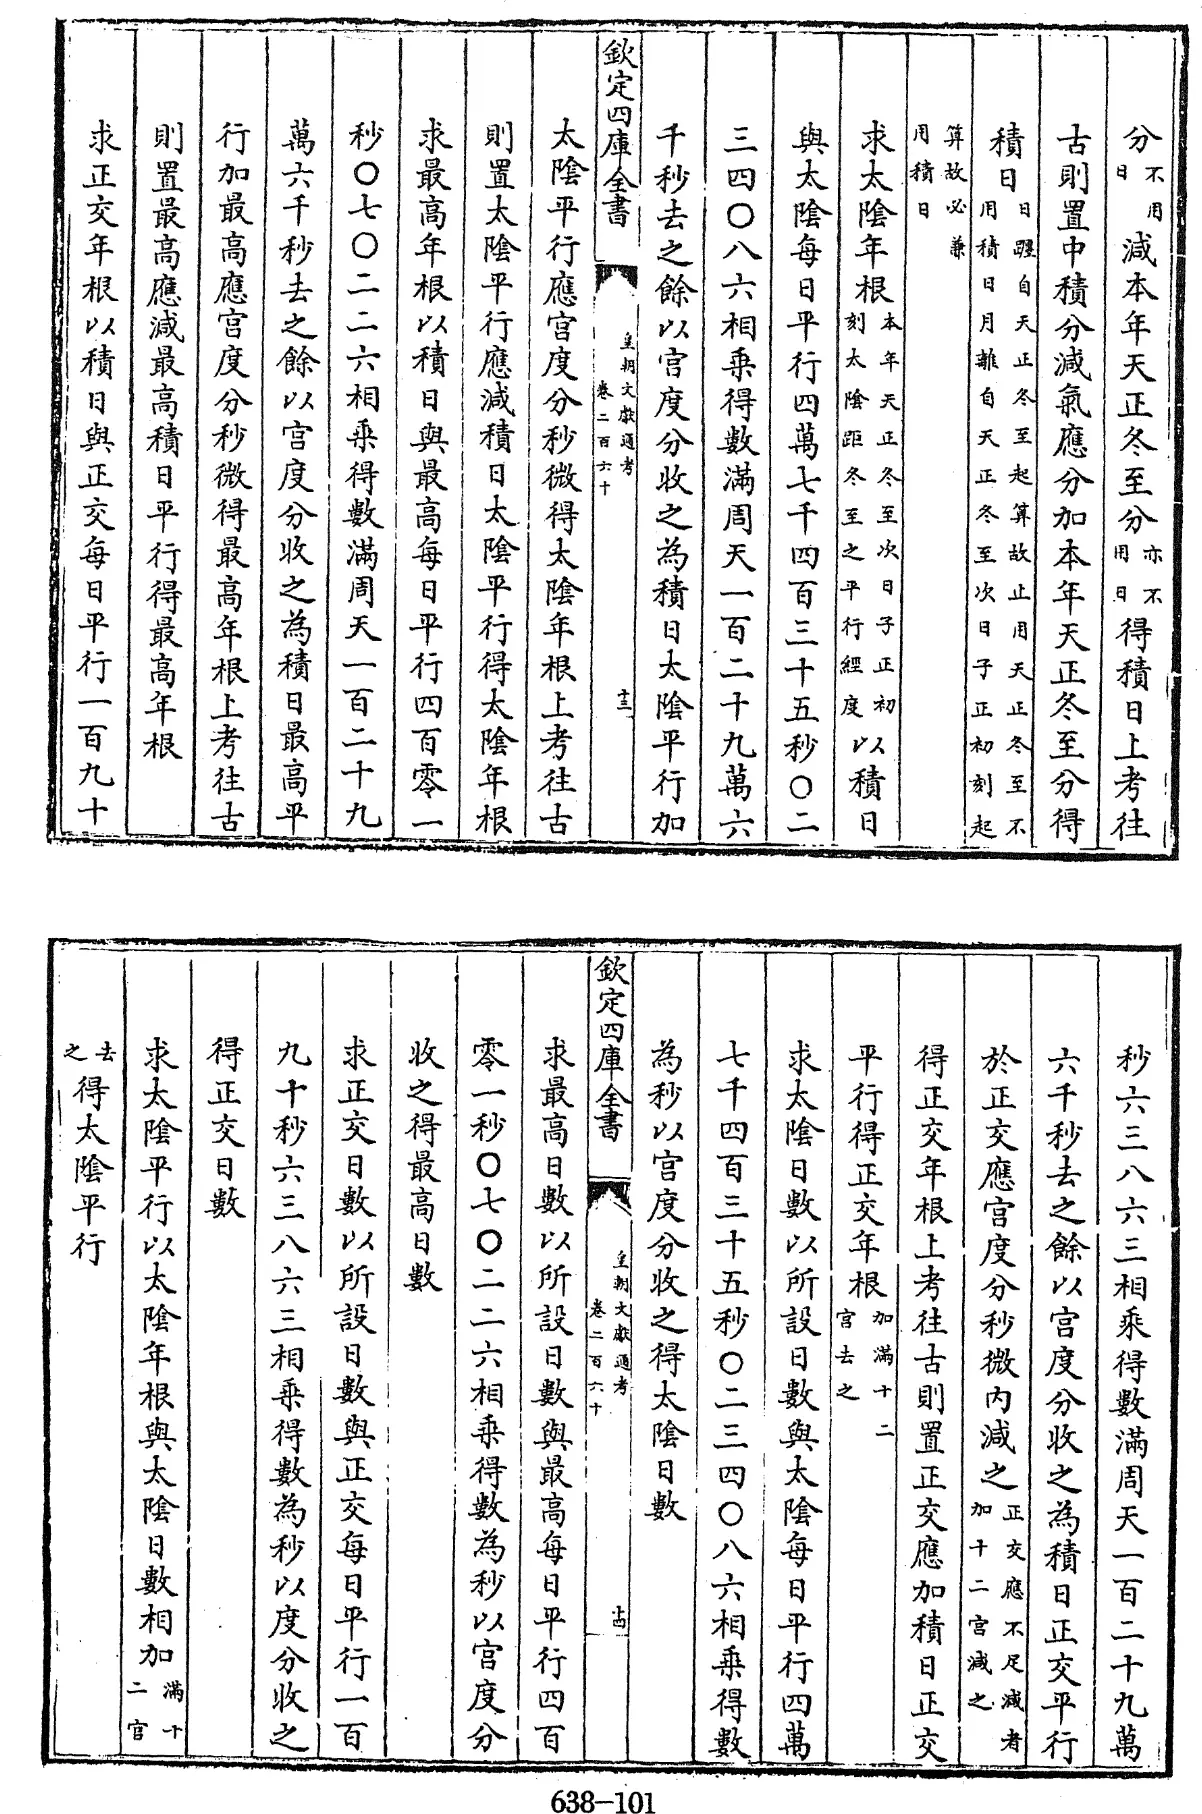 分不用日減本年天正冬至分亦不用日得積日上考往
古則置中積分減氣應分加本年天正冬至分得
積日日躔自天正冬至起算故止用天正冬至不用積日月離自天正冬至次日子正初刻起
算故必兼用積日
求太陰年根本年天正冬至次日子正初刻太陰距冬至之平行經度以積日
與太陰每日平行四萬七千四百三十五秒〇二
三四〇八六相乗得數滿周天一百二十九萬六
千秒去之餘以宫度分收之為積日太陰平行加
欽定四庫全書
皇朝文獻通考
卷二百六十
十三
太陰平行應宫度分秒微得太陰年根上考往古
則置太陰平行應減積日太陰平行得太陰年根
求最高年根以積日與最高每日平行四百零一
秒〇七〇二二六相乗得數滿周天一百二十九
萬六千秒去之餘以宫度分收之為積日最高平
行加最高應宫度分秒微得最高年根上考往古
則置最高應減最高積日平行得最高年根
求正交年根以積日與正交每日平行一百九十
秒六三八六三相乗得數滿周天一百二十九萬
六千秒去之餘以宫度分收之為積日正交平行
於正交應宫度分秒微内減之正交應不足減者加十二宫減之
得正交年根上考往古則置正交應加積日正交
平行得正交年根加滿十二宫去之
求太陰日數以所設日數與太陰每日平行四萬
七千四百三十五秒〇二三四〇八六相乗得數
為秒以宫度分收之得太陰日數
欽定四庫全書
皇朝文獻通考
卷二百六十
十四
求最高日數以所設日數與最高每日平行四百
零一秒〇七〇二二六相乗得數為秒以宫度分
收之得最高日數
求正交日數以所設日數與正交每日平行一百
九十秒六三八六三相乗得數為秒以度分收之
得正交日數
求太陰平行以太陰年根與太陰日數相加滿十二宫
去之得太陰平行
638-101